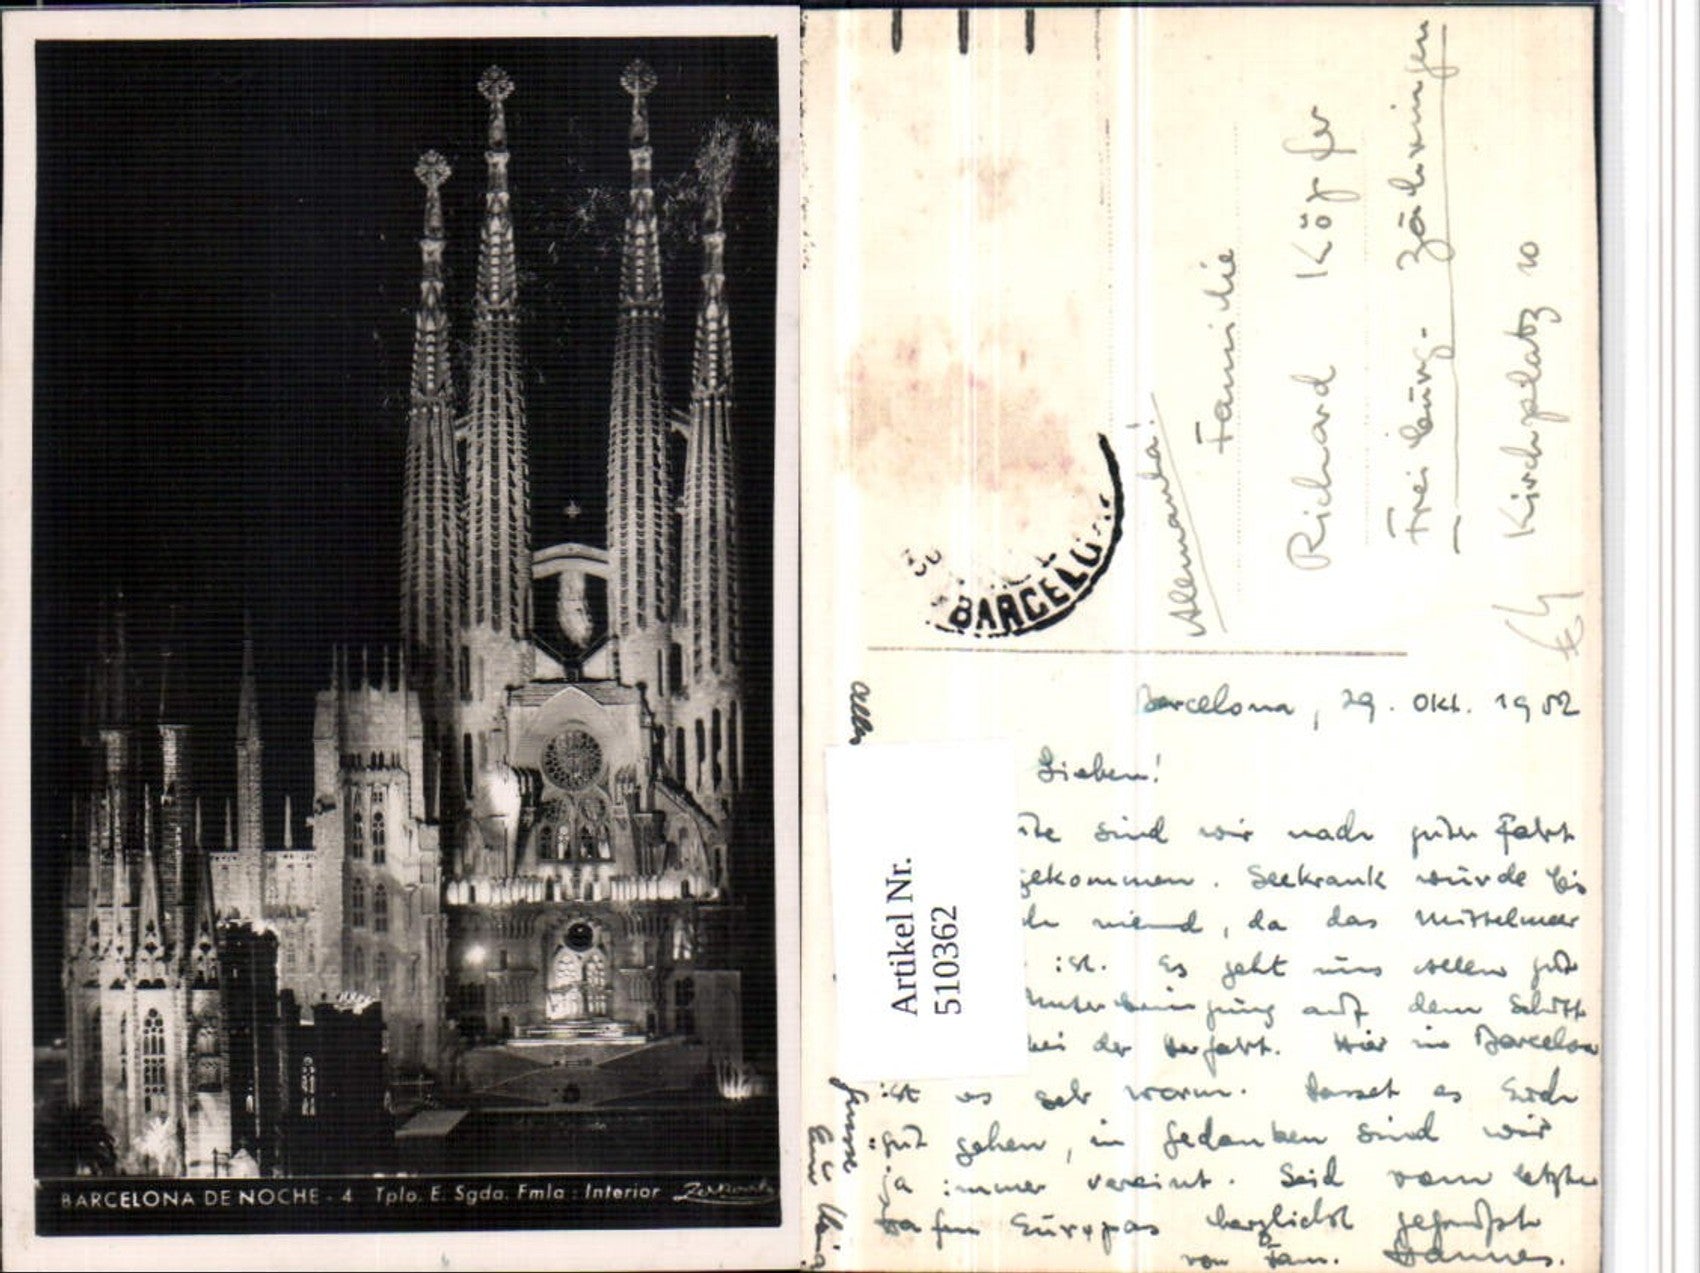 BARCELONA DE NOCHE - 4 Tplo. E. Sgda. Fmla : Interior Zerkowitz
BARCELO
Alemania!
Familie
Richard Köpfer
Freiburg- Zähringen
Kirchplatz 10
Artikel Nr.
510362
Barcelona, 29. Okt. 1952
Lieben!
sind wir nach guter Fahrt
gekommen. Seekrank wurde bis
niemd, da das Mittelmeer
ist. Es geht uns allen gut
Unterbringung auf dem Schiff
bei der Herfahrt. Hier in Barcelona
ist es sehr warm. Lasset es Euch
gut gehen, in Gedanken sind wir
ja immer vereint. Seid vom letzten
Hafen Europas herzlichst gegrüßt
von Fam. Hannes.